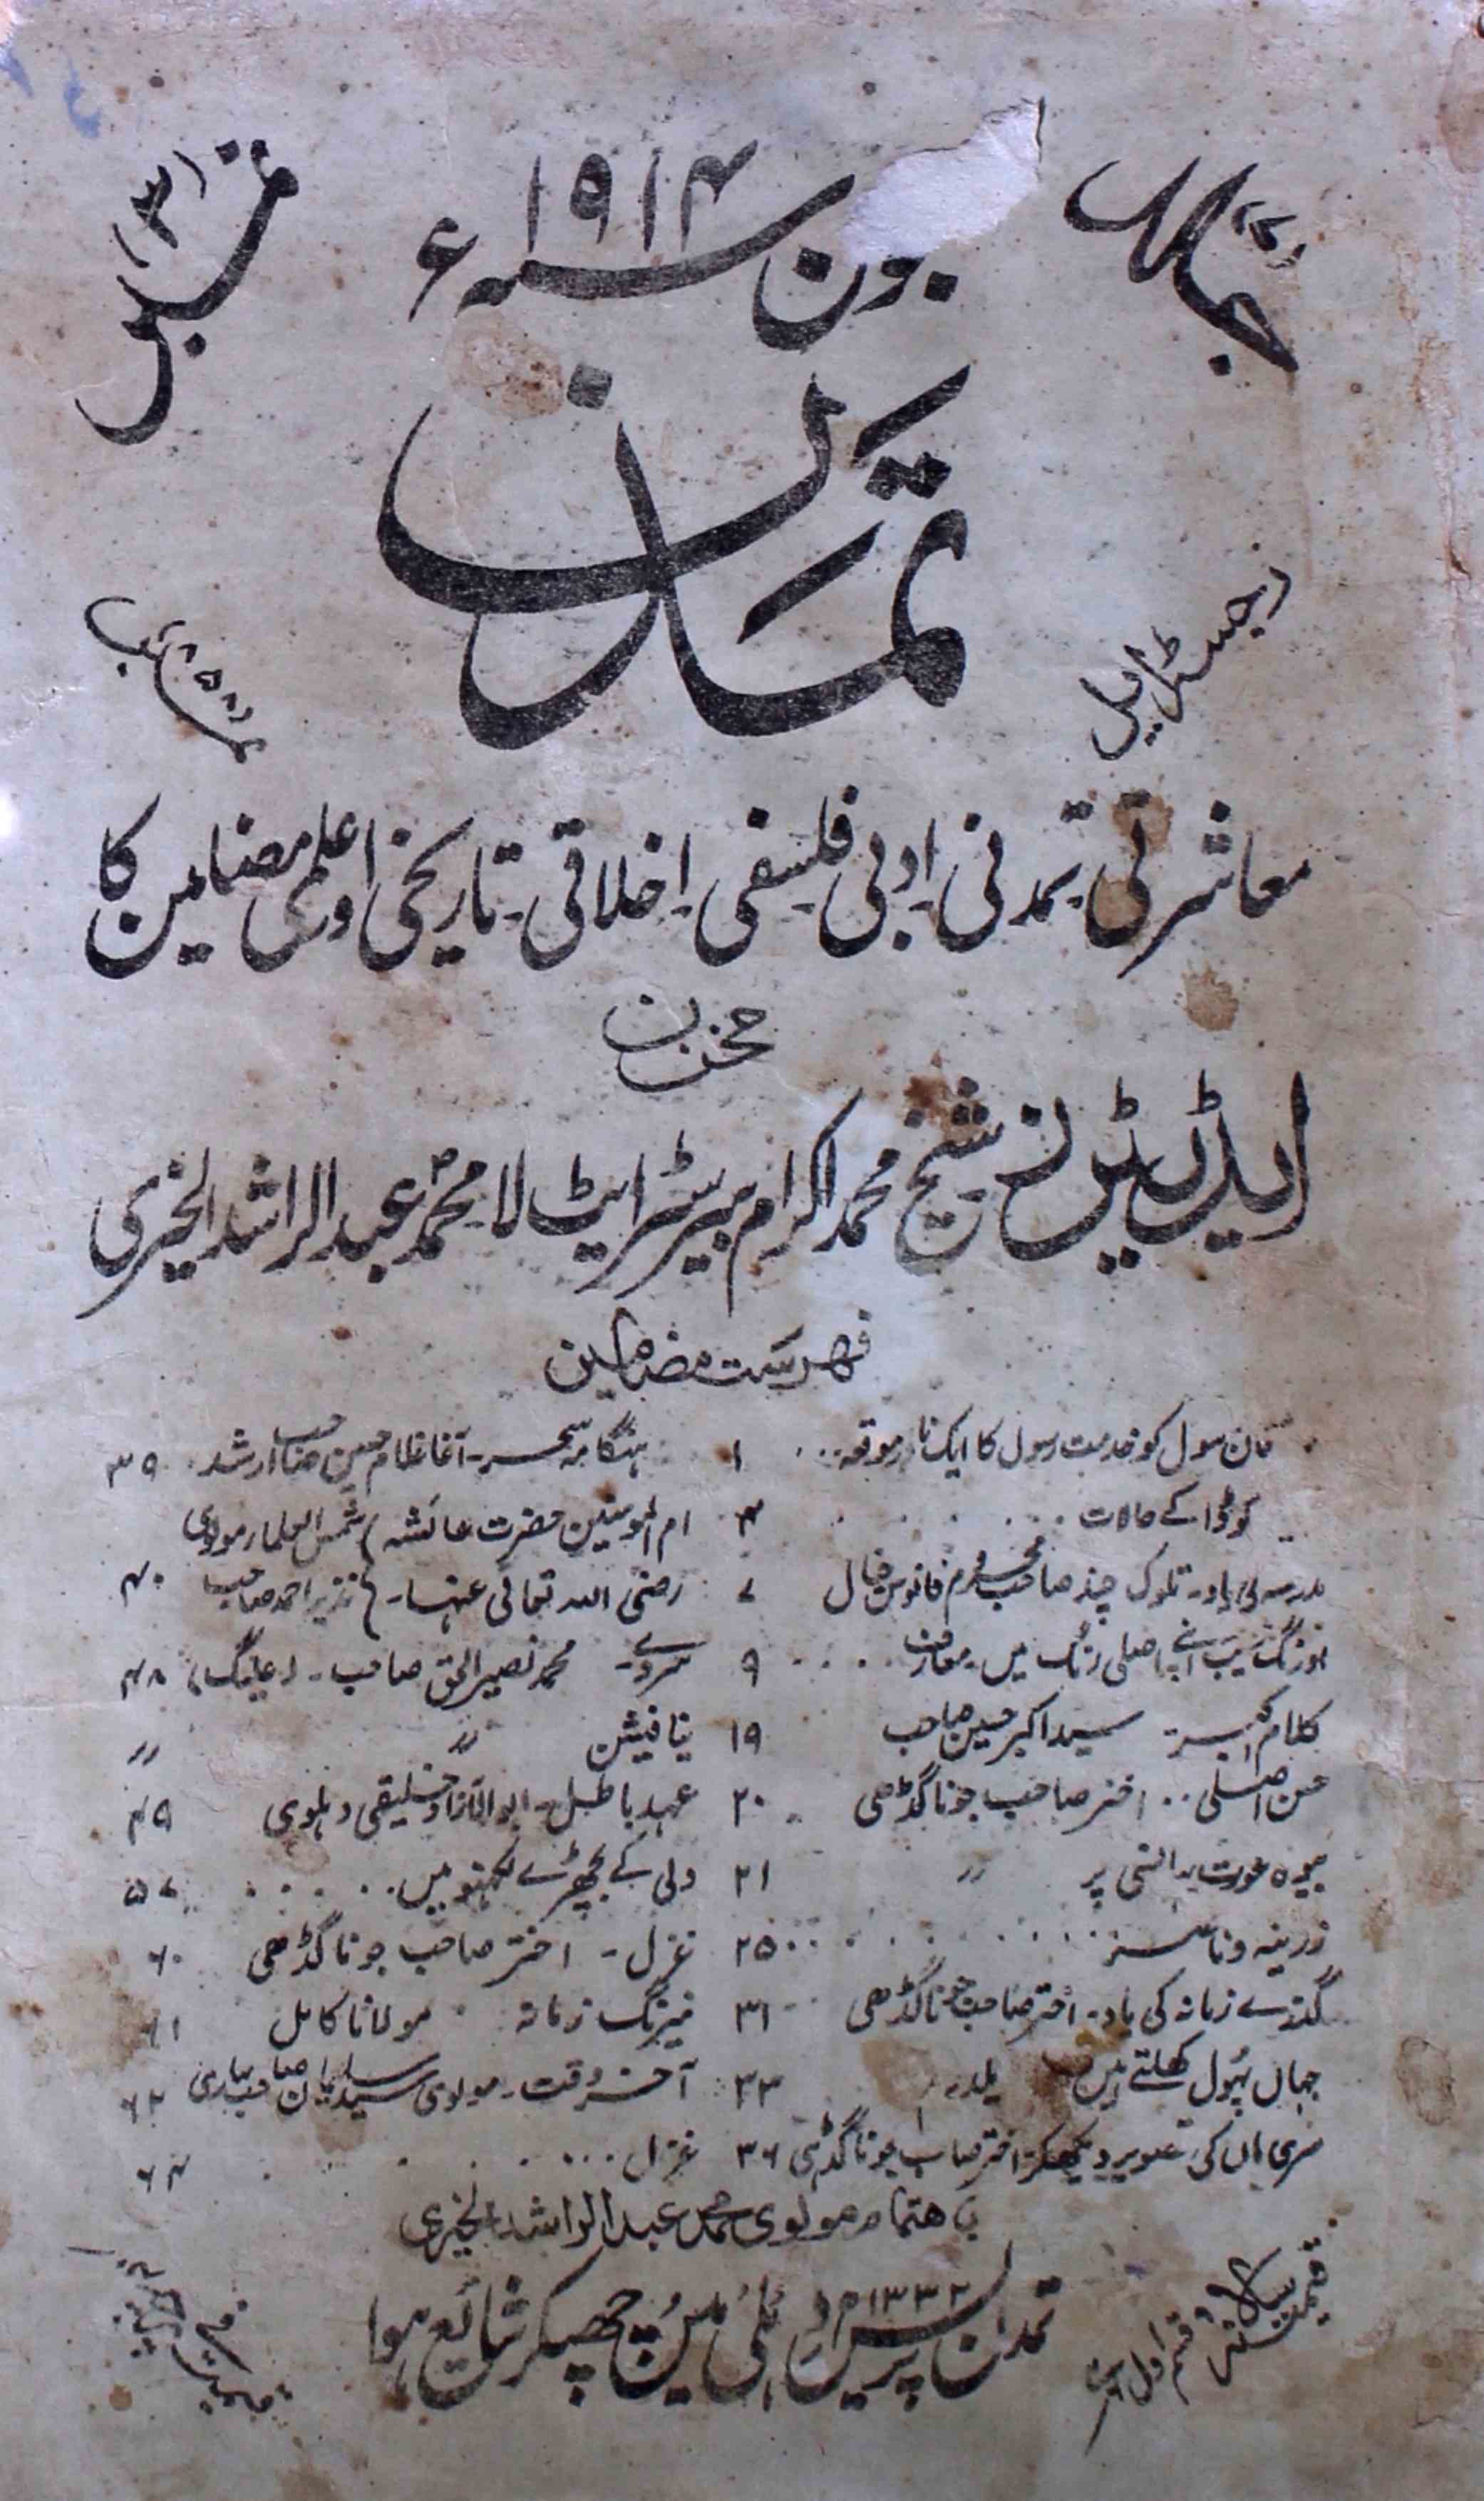 جلد
جون سنہ ۱۹۱۴ ء
نمبر (۳)
تمدن
رجسٹرڈ ایل
نمبر
معاشرتی تمدنی ادبی فلسفی اخلاقی۔ تاریخی اور علمی مضامین کا
مخزن
ایڈیٹرز شیخ محمد اکرام بیرسٹرایٹ لا محمد عبد الراشد الخیری
فہرست مضامین
کو خدمت رسول کا ایک نادر موقعہ ... ۱
کے حالات ... ۴
تلوک چند صاحب محروم فانوس خیال ۷
اورنگ زیب اپنے اصلی رنگ میں۔ معارف .... ۹
کلام اکبر۔ سید اکبر حسین صاحب ۱۹
حسن اصلی .. اختر صاحب جوناگڈھی ۲۰
بیوہ عورت پر 〃 ۲۱
زرینہ و ناستنر ........ ۲۵
گذرے زمانہ کی یاد۔ اختر صاحب جوناگڈھی ۳۱
جہاں پُھول کھلتے ہیں یلدرم ۳۳
کی تصویر دیکھکر اختر صاحب جوناگڈھی ۳۶
ہنگامہ سحر۔ آغا غلام حسین صاحب ارشد ۳۹
ام المومنین حضرت عائشہ } شمس العلماء مولوی
رضی اللہ تعالی عنہا۔ } نذیر احمد صاحب ۴۰
محمد نصیر الحق صاحب۔ (علیگ) ۴۸
نیا فیشن 〃 〃
عہد باطل۔ ابوالآزاد خلیقی دہلوی ۴۹
دلی کے بچھڑے لکھنو میں ..... ۵۷
غزل - اختر صاحب جوناگڈھی ۶۰
نیرنگ زمانہ مولانا کامل ۶۱
آخر وقت۔ مولوی سید سلیمان صاحب بہاری ۶۲
غزل .... ۶۴
باهتمام مولوی محمد عبد الراشد الخیری
تمدن پریس دہلی میں چھپکر شائع ہوا
۱۳۳۲
قیمت سالانہ قسم اول
قیمت فی پرچہ